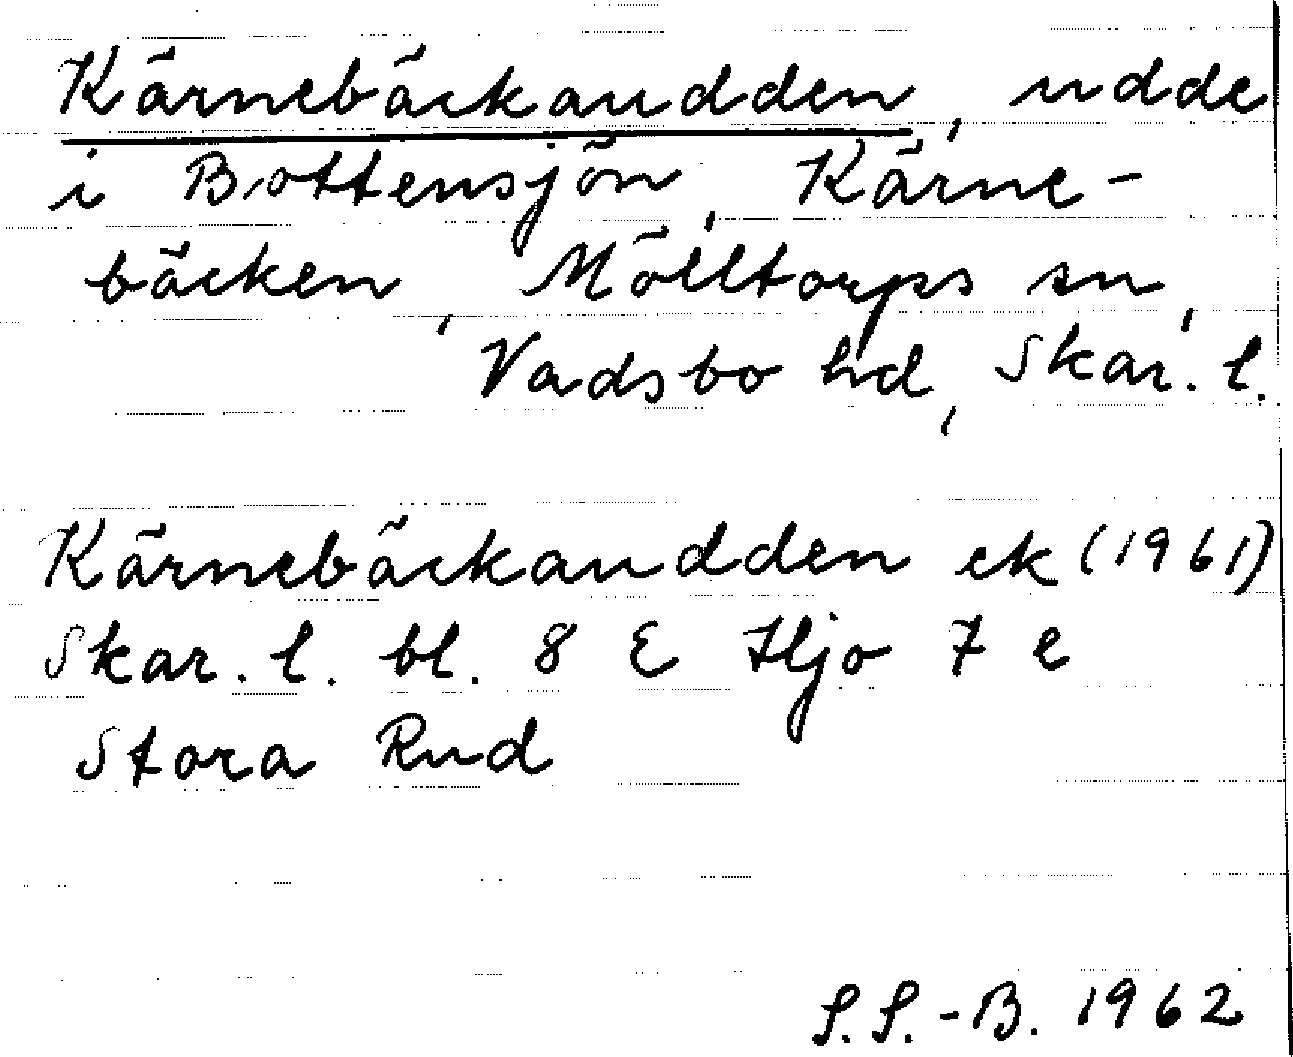 Kärnebäckaudden, udde
i Bottensjön, Kärne-
bäcken, Mölltorps sn,
Vadsbo hd, Skar. l.
Kärnebäckaudden ek (1961)
Skar. l. bl. 8 E Hjo 7 e
Stora Rud
S.S.-B. 1962